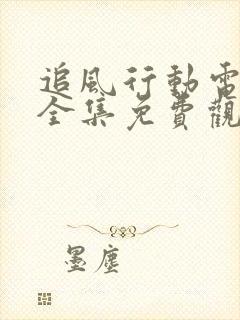 追風行動電
全集免費觀
墨塵